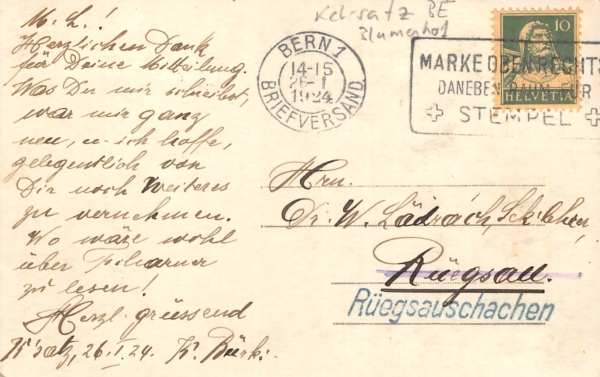 M. L.!
Herzlichen Dank
für Deine Mitteilung.
Was Du mir schreibst,
war mir ganz
neu, u. ich hoffe,
gelegentlich von
Dir noch Weiteres
zu vernehmen.
Wo wäre wohl
über
zu lesen!
Herzl. grüssend
K'satz, 26.I.24. K. Bürki.
Kehrsatz BE
Blumenhof
BERN 1
14-15
26.I
1924
BRIEFVERSAND
10
HELVETIA
MARKE OBEN RECHTS
DANEBEN RAUM FÜR
STEMPEL
Hrn.
Dr. W. Lädrach, Sek.lehrer,
Rüegsau.
Rüegsauschachen